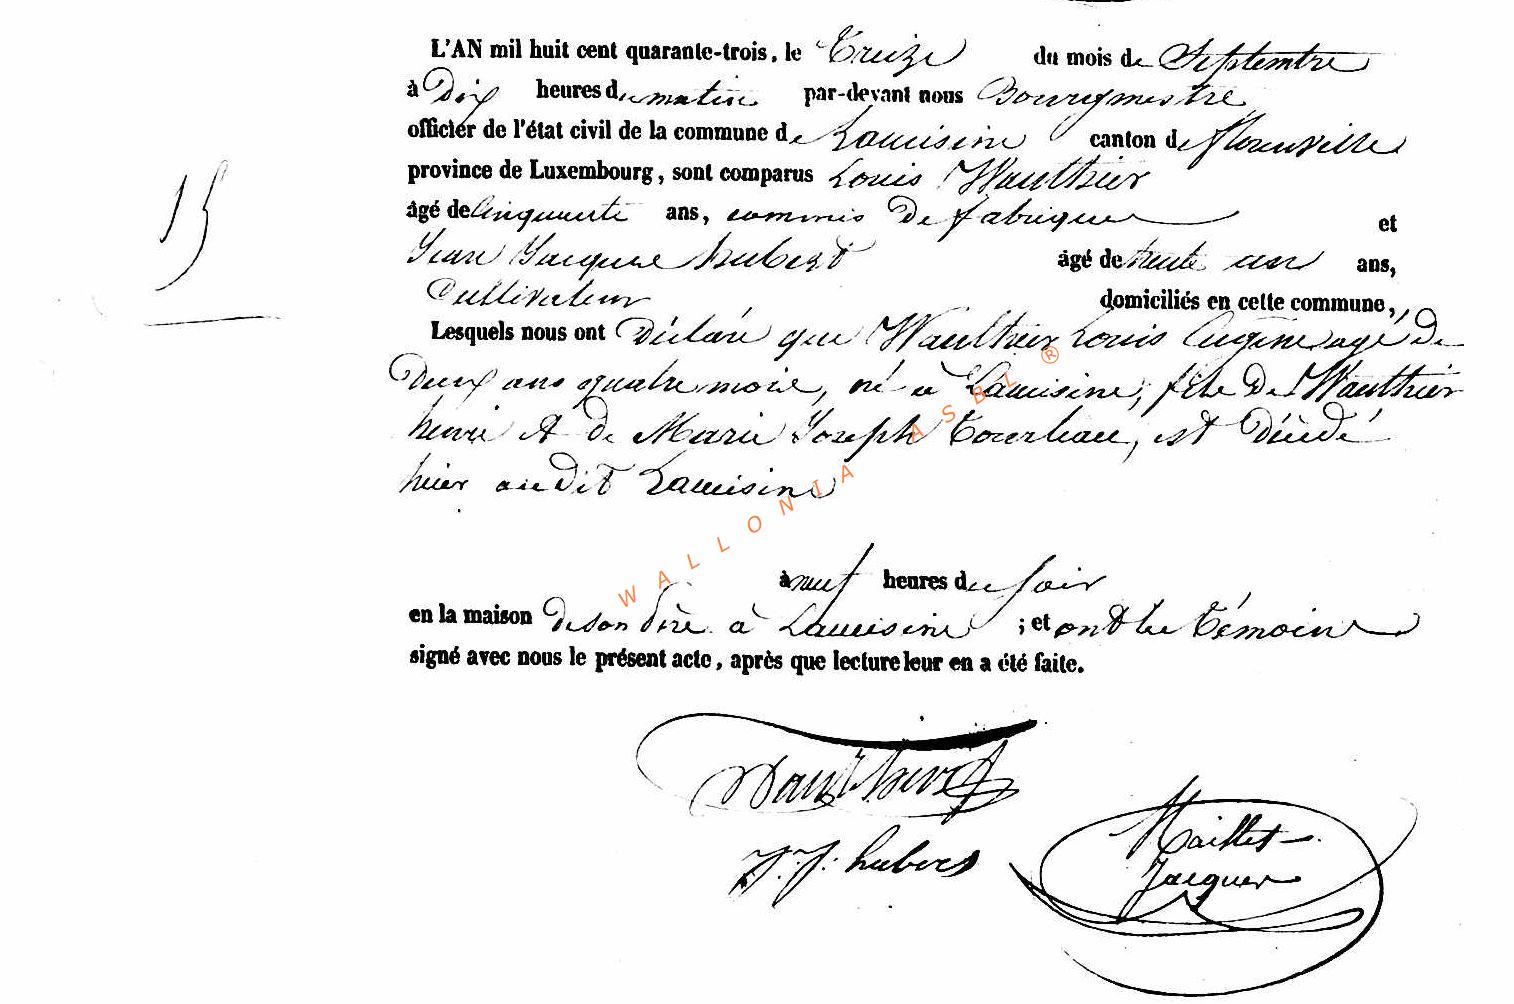 L'AN mil huit cent quarante-trois, le Treize du mois de Septembre
à Dix heures du matin par-devant nous Bourgmestre
officier de l'état civil de la commune de Lacuisine canton de florenville
province de Luxembourg, sont comparus Louis Wauthier
âgé de cinquante ans, commis de fabrique et
Jean Jacques hubert âgé de trente un ans,
Cultivateur domiciliés en cette commune,
Lesquels nous ont Déclaré que Wauthier Louis Eugène agé de
Deux ans quatre mois, né à Lacuisine, fils de Wauthier
henri et de Marie Joseph, est Décédé
hier au dit Lacuisine
WALLONIA ASBL ®
à neuf heures du soir
en la maison de son père à Lacuisine ; et ont les témoins
signé avec nous le présent acte, après que lecture leur en a été faite.
15
Wauthier
J. J. hubert
Maillet
Jacques